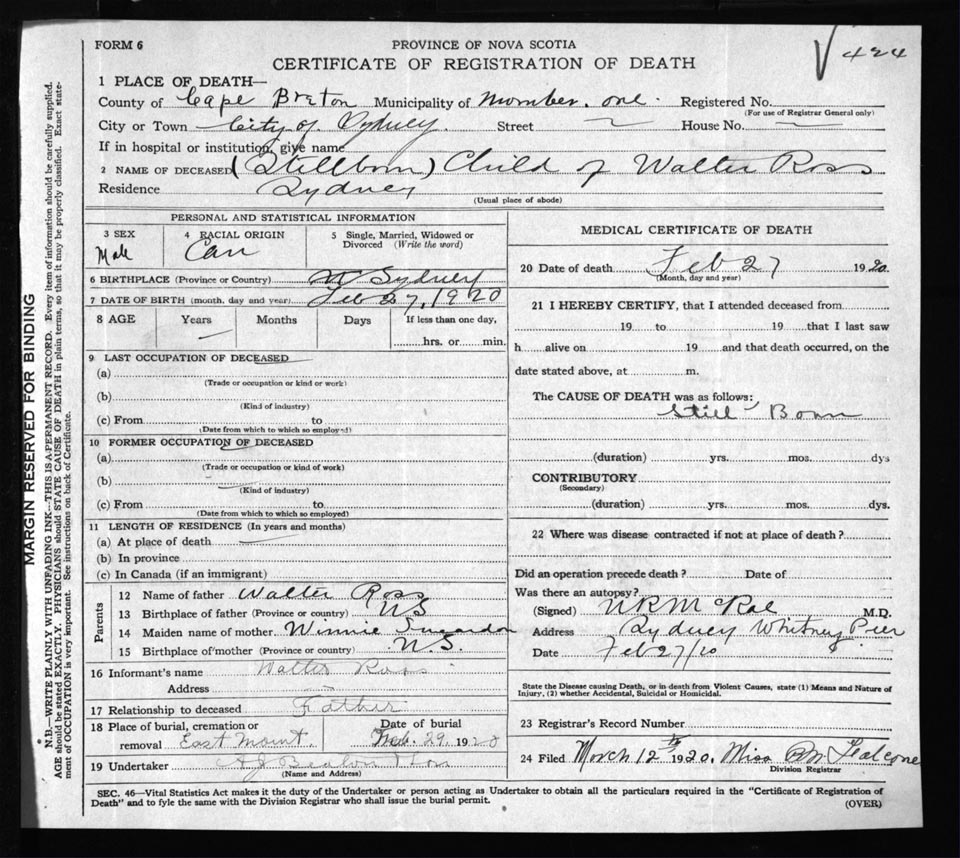 FORM 6
PROVINCE OF NOVA SCOTIA
CERTIFICATE OF REGISTRATION OF DEATH
424
1 PLACE OF DEATH—
County of Cape Breton Municipality of Number one Registered No.
(For use of Registrar General only)
City or Town City of Sydney. Street House No.
If in hospital or institution, give name
2 NAME OF DECEASED (Stillborn) Child of Walter Ross
Residence Sydney
(Usual place of abode)
PERSONAL AND STATISTICAL INFORMATION
3 SEX
Male
4 RACIAL ORIGIN
Can
5 Single, Married, Widowed or
Divorced (Write the word)
6 BIRTHPLACE (Province or Country) Sydney
7 DATE OF BIRTH (month, day and year) Feb 27, 1920
8 AGE Years Months Days If less than one day,
hrs. or min.
9 LAST OCCUPATION OF DECEASED
(a)
(Trade or occupation or kind or work)
(b)
(Kind of industry)
(c) From to
(Date from which to which so employed)
10 FORMER OCCUPATION OF DECEASED
(a)
(Trade or occupation or kind of work)
(b)
(Kind of industry)
(c) From to
(Date from which to which so employed)
11 LENGTH OF RESIDENCE (In years and months)
(a) At place of death
(b) In province
(c) In Canada (if an immigrant)
Parents
12 Name of father Walter Ross
13 Birthplace of father (Province or country) NS
14 Maiden name of mother Winnie
15 Birthplace of mother (Province or country) N.S.
16 Informant's name Walter Ross
Address
17 Relationship to deceased Father
18 Place of burial, cremation or
removal East Mount.
Date of burial
Feb. 29, 1920
19 Undertaker A J Beaton
(Name and Address)
MEDICAL CERTIFICATE OF DEATH
20 Date of death Feb 27 1920.
(Month, day and year)
21 I HEREBY CERTIFY, that I attended deceased from
19 to 19 that I last saw
h alive on 19 and that death occurred, on the
date stated above, at m.
The CAUSE OF DEATH was as follows:
Still Born
(duration) yrs. mos. dys
CONTRIBUTORY
(Secondary)
(duration) yrs. mos. dys.
22 Where was disease contracted if not at place of death?
Did an operation precede death? Date of
Was there an autopsy?
(Signed) McRae M.D.
Address Sydney Whitney Pier
Date Feb 27/20
State the Disease causing Death, or in death from Violent Causes, state (1) Means and Nature of
Injury, (2) whether Accidental, Suicidal or Homicidal.
23 Registrar's Record Number
24 Filed March 12th 1920. Miss
Division Registrar
SEC. 46—Vital Statistics Act makes it the duty of the Undertaker or person acting as Undertaker to obtain all the particulars required in the "Certificate of Registration of
Death" and to fyle the same with the Division Registrar who shall issue the burial permit.
(OVER)
MARGIN RESERVED FOR BINDING
N.B.—WRITE PLAINLY WITH UNFADING INK—THIS IS A PERMANENT RECORD. Every item of information should be carefully supplied.
AGE should be stated EXACTLY. PHYSICIANS should STATE CAUSE OF DEATH in plain terms, so that it may be properly classified. Exact state-
ment of OCCUPATION is very important. See instructions on back of Certificate.